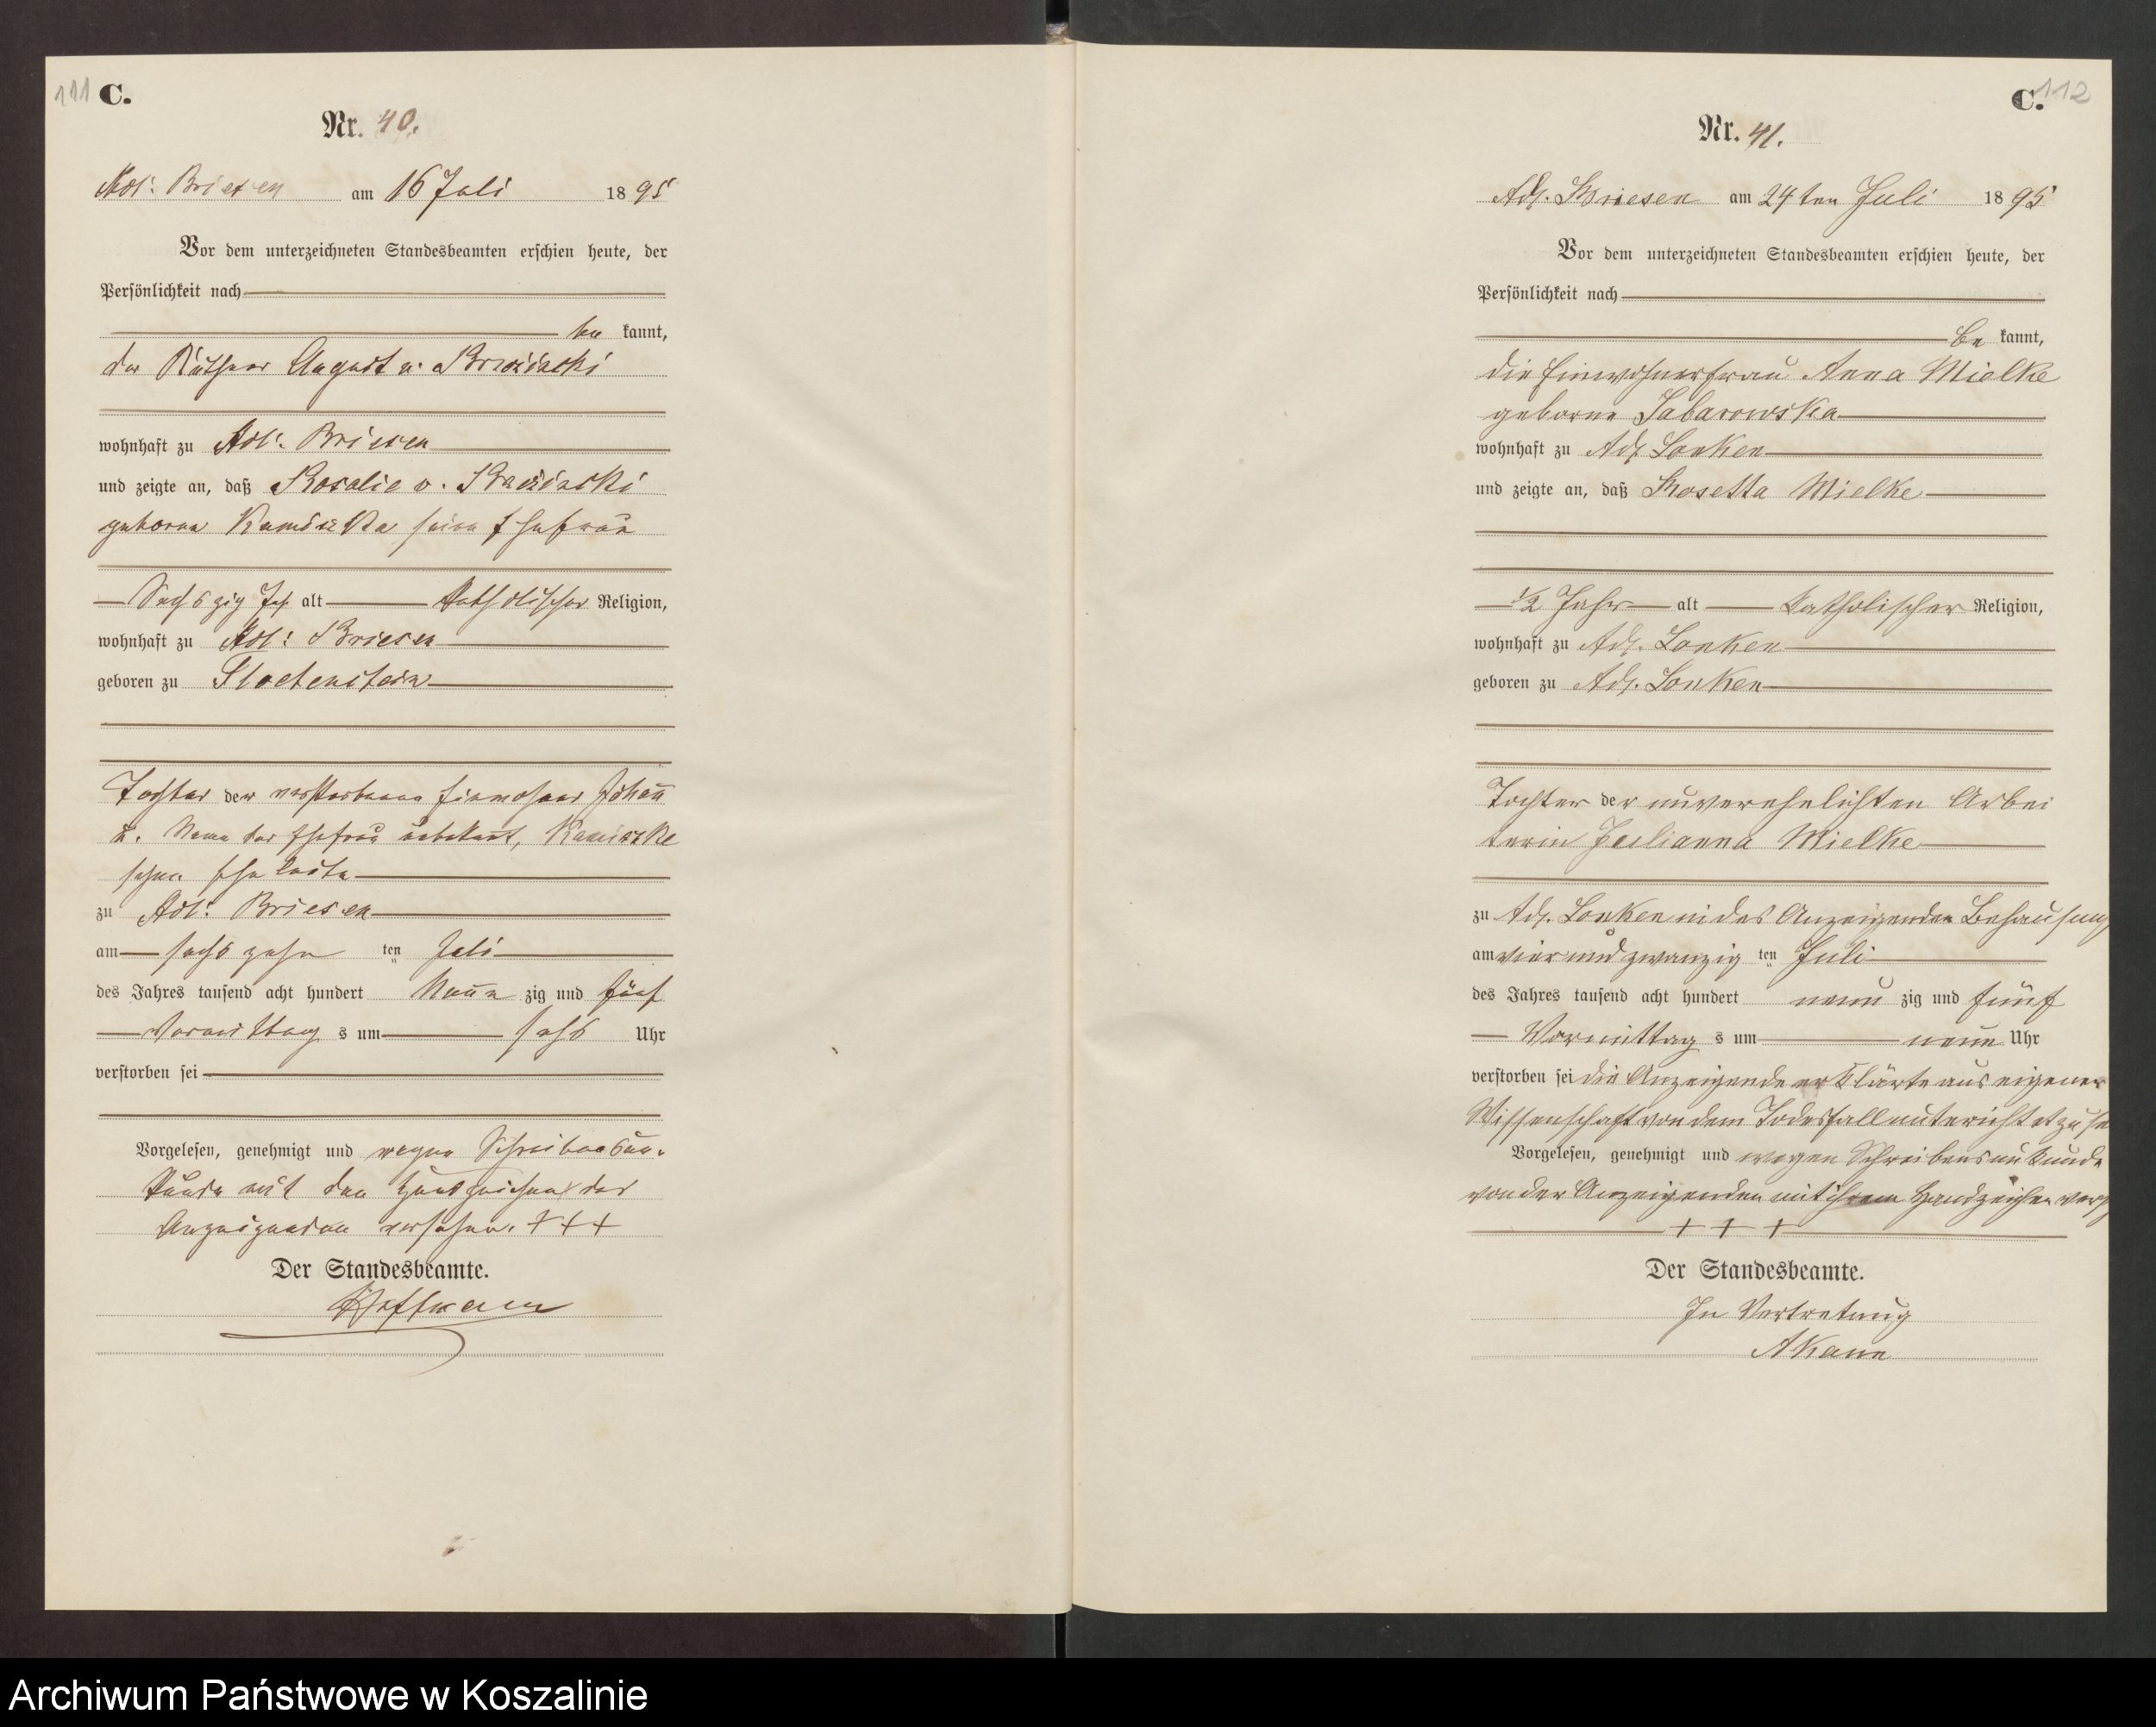 111 C.
Nr. 40.
Adl: Briesen am 16 Juli 1895
Vor dem unterzeichneten Standesbeamten erschien heute, der
Persönlichkeit nach
be kannt,
der Käthner August v.
wohnhaft zu Adl: Briesen
und zeigte an, daß Rosalie v.
geborne seine Ehefrau
Sechszig Jah alt katholischer Religion,
wohnhaft zu Adl: Briesen
geboren zu
Tochter der verstorbenen Einwohner Johann
u. Name der Ehefrau unbekannt,
schen Eheleute
zu Adl: Briesen
am sechszehn ten Juli
des Jahres tausend acht hundert Neun zig und fünf
Vormittag s um sechs Uhr
verstorben sei
Vorgelesen, genehmigt und wegen Schreibensun-
kunde mit den Handzeichen des
Anzeigenden versehen. + + +
Der Standesbeamte.
Hoffmann
C. 112
Nr. 41.
Adl. Briesen am 24ten Juli 1895
Vor dem unterzeichneten Standesbeamten erschien heute, der
Persönlichkeit nach
be kannt,
die Einwohnerfrau Anna Mielke
geborne
wohnhaft zu Adl. Lonken
und zeigte an, daß Rosetta Mielke
1/2 Jahr alt katholischer Religion,
wohnhaft zu Adl. Lonken
geboren zu Adl. Lonken
Tochter der unverehelichten Arbei
terin Julianna Mielke
zu Adl. Lonken in des Anzeigenden Behausung
am vier und zwanzig ten Juli
des Jahres tausend acht hundert neun zig und fünf
Vormittag s um neun Uhr
verstorben sei die Anzeigende erklärte aus eigener
Wissenschaft von dem Todesfall unterichtet zu se
Vorgelesen, genehmigt und wegen Schreibensunkunde
von der Anzeigenden mit ihrem Handzeichen vers
+ + +
Der Standesbeamte.
In Vertretung
AKann
Archiwum Państwowe w Koszalinie